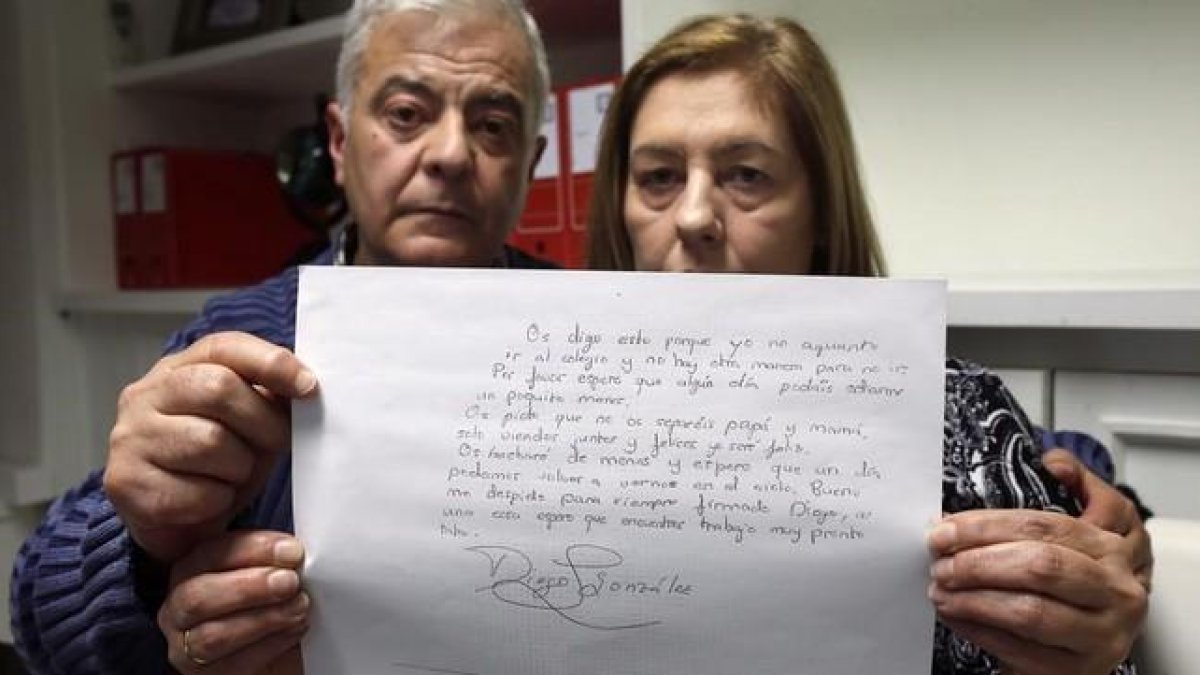 Os digo esto porque yo no aguanto
ir al colegio y no hay otra manera para no ir.
Por favor espero que algún día podáis odiarme
un poquito menos.
Os pido que no os separéis papá y mamá,
solo viendos juntos y felices yo seré feliz.
Os echaré de menos y espero que un día
podamos volver a vernos en el cielo. Bueno
me despido para siempre firmado Diego,
una cosa espero que encuentres trabajo muy pronto
Tito.
Diego González